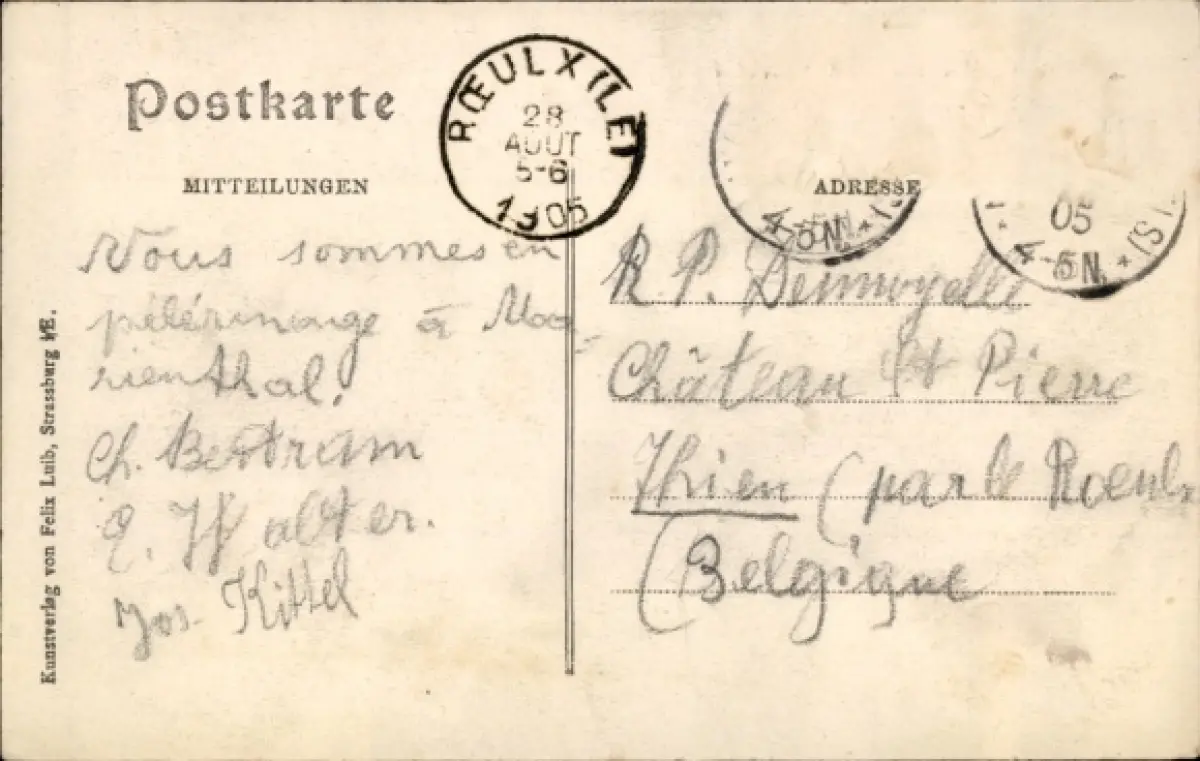 Postkarte
MITTEILUNGEN
RŒULX (LE)
28
AOUT
5-6
1905
ADRESSE
4-5N.
05
4-5N.
Nous sommes en
pélérinage à Ma-
rienthal.
Ch. Bertram
Walter.
Jos. Kittel
R. P.
Château St Pierre
Thieu (par le Roeulx
(Belgique
Kunstverlag von Felix Luib, Strassburg i/E.